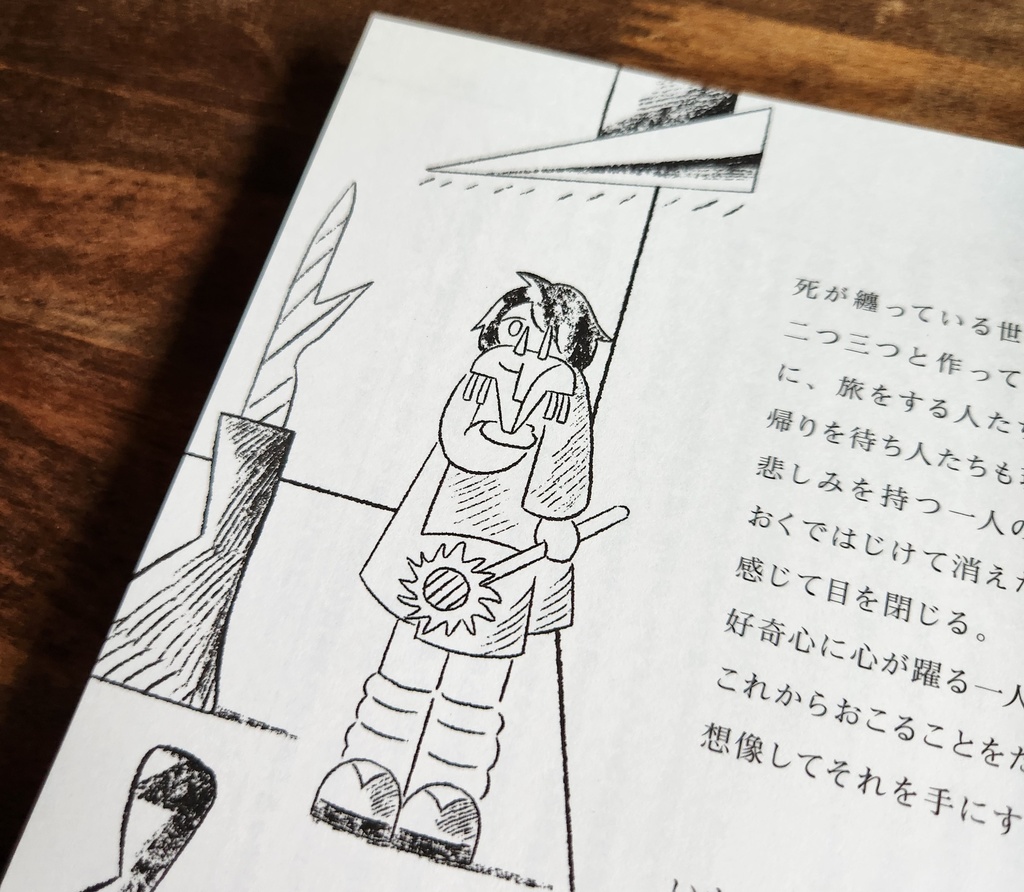 死が纏っている世
二つ三つと作って
に、旅をする人た
帰りを待ち人たちも
悲しみを持つ一人の
おくではじけて消えた
感じて目を閉じる。
好奇心に心が躍る一人
これからおこることをた
想像してそれを手にす